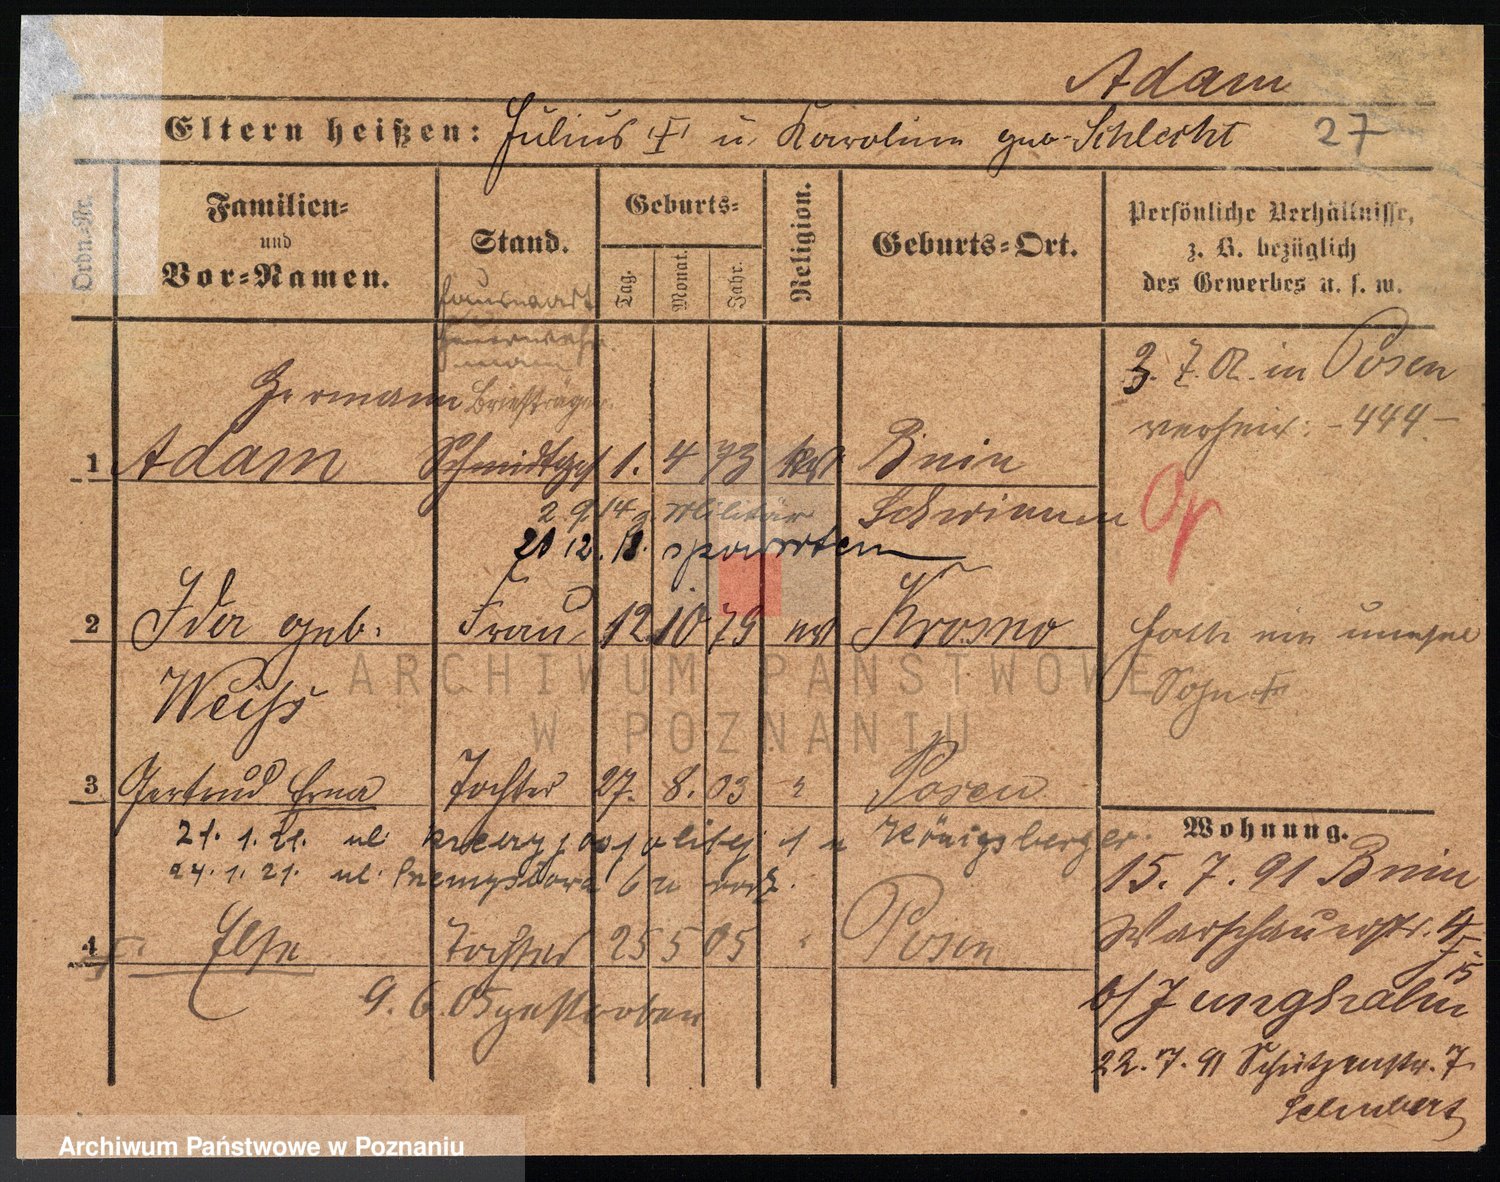 Adam
Eltern heißen: Julius † u. Karoline geb. Schlecht 27
Ordn.-Nr.
Familien-
und
Vor-Namen.
Stand.
Geburts-
Tag. Monat. Jahr.
Religion.
Geburts-Ort.
Persönliche Verhältnisse,
z. B. bezüglich
des Gewerbes u. s. w.
Hermann Briefträger
1 Adam Schmidtges 1. 4 73 Bnin
Schrimm
2.9.14 z. Militär
12. 18.
2 Ida geb. Frau 12. 10 79 Krosno
Weiß
3 Gertrud Erna Tochter 27. 8. 03 " Posen
21. 1. 21. ul 1 u Königsberger
24. 1. 21. ul.
4 Else Tochter 25 5 05 " Posen
9. 6. 05 gestorben
3. 7. 02. in Posen
verheir. - 444 -
Sohn †
Wohnung.
15. 7. 91 Bnin
Warschauerstr. 4
15
b/ Junghahn
22. 7. 91 Schützenstr. 7
Schubert
ARCHIWUM PAŃSTWOWE
W POZNANIU
Archiwum Państwowe w Poznaniu